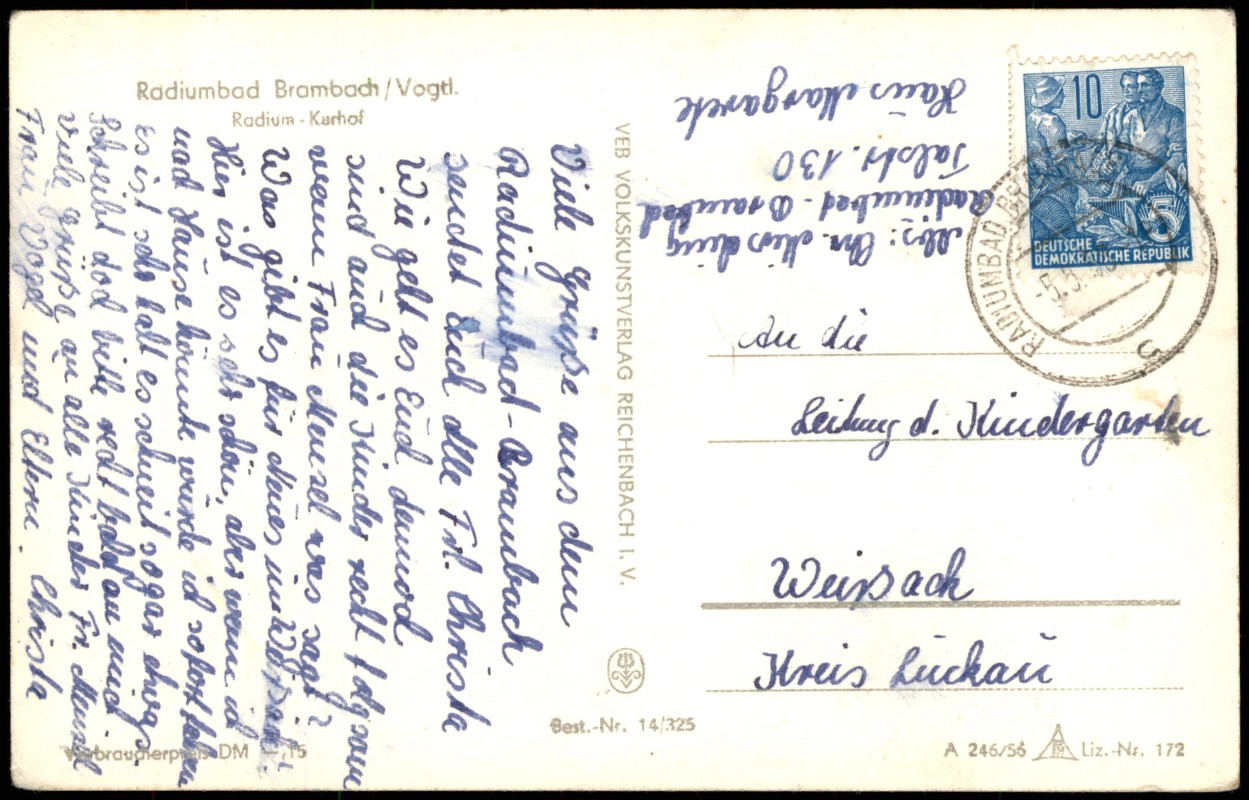 Radiumbad Brambach/Vogtl.
Radium-Kurhof
Viele Grüße aus dem
Radiumbad-Brambach
sendet Euch alle Frl. Christa
Wie geht es Euch danach
sind auch die Kinder recht folgsam
wenn Frau Mensel was sagt?
Was gibt es für Neues in Weissack?
Hier ist es sehr schön, aber wenn ich
nach Hause könnte würde ich sofort fahren
es ist sehr kalt es schneit sogar etwas
Schreibt doch bitte recht bald an mich
Viele Grüße an alle Kinder Fr.
Frau Vogel und Eltern. Christa
Verbraucherpreis DM -,15
VEB VOLKSKUNSTVERLAG REICHENBACH I. V.
Best.-Nr. 14/325
Abs: Chr.
Radiumbad-Brambach
Talstr. 130
Haus Margarete
10
5
DEUTSCHE
DEMOKRATISCHE REPUBLIK
RADIUMBAD BRAMBACH
An die
Leitung d. Kindergarten
Weissack
Kreis Luckau
A 246/56
Liz.-Nr. 172